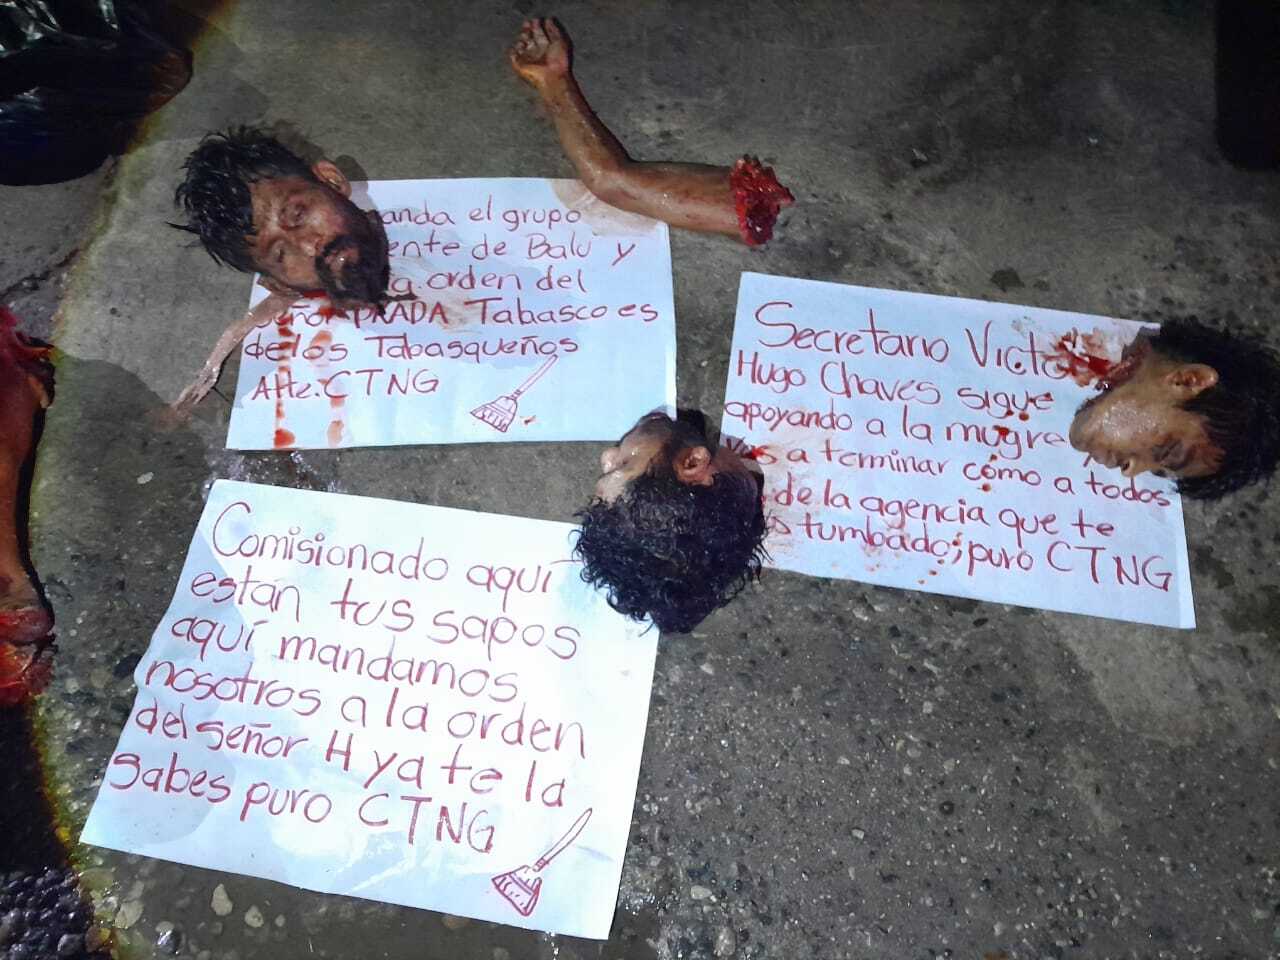 anda el grupo
ente de Balu y
a orden del
señor PRADA Tabasco es
de los Tabasqueños
Atte. CTNG
Secretario Victo
Hugo Chaves sigue
apoyando a la mugre
a terminar cómo a todos
de la agencia que te
tumbado; puro CTNG
Comisionado aquí
están tus sapos
aquí mandamos
nosotros a la orden
del señor H ya te la
sabes puro CTNG